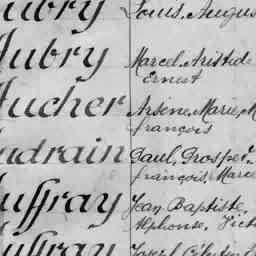 Aubry Louis, Augus
Aubry Marcel Aristide
Ernest
Aucher Arsène, Marie, M
françois
Audrain Paul, Prosper,
françois, Marce
Auffray Jean Baptiste,
Alphonse, Vict
Auffray Joseph Célestin